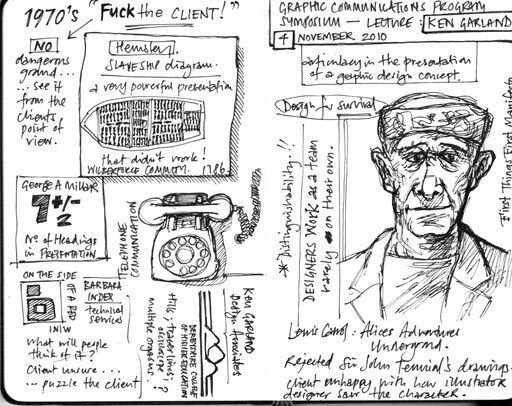 1970's "Fuck the CLIENT!"
NO
dangerous
ground...
... see it
from the
client's
point of
view.
SLAVESHIP diagram.
a very powerful presentation
that didn't work!
1786.
George A Miller
7 +/- 2
No of Headings
in PRESENTATION
TELEPHONE
COMMUNICATION
ON THE SIDE
OF A BED
BARBARA
INDEX
technical
services
what will people
think of it?
Client unsure...
... puzzle the client
multiple orgasms.
DERBYSHIRE COLLEGE
OF HIGHER EDUCATION
KEN GARLAND
Design Associates
GRAPHIC COMMUNICATIONS PROGRAM
SYMPOSIUM — LECTURE: KEN GARLAND
4 NOVEMBER 2010
particularly in the presentation
of a graphic design concept.
Design for survival
* Distinguishability!!
DESIGNERS WORK as a team
rarely on their own.
First Things First Manifesto
Lewis Carrol: Alices Adventures
Underground.
Rejected Sir John Tenniel's drawings.
client unhappy with how illustrator
designer saw the character.